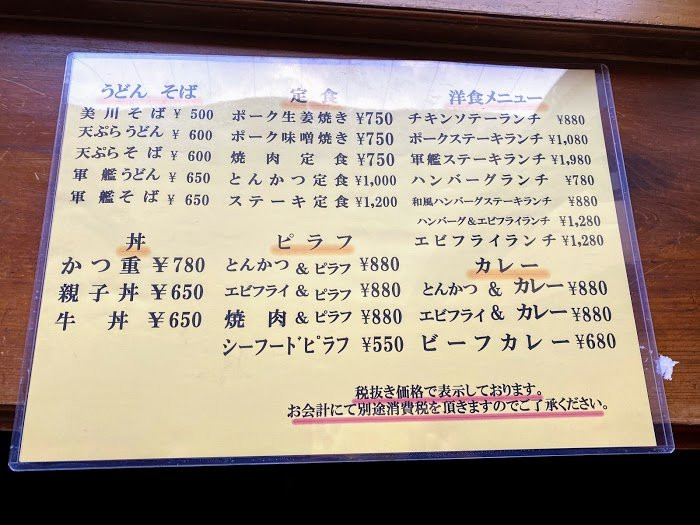 うどん そば
美川そば ¥ 500
天ぷらうどん ¥ 600
天ぷらそば ¥ 600
軍艦うどん ¥ 650
軍艦そば ¥ 650
定食
ポーク生姜焼き ¥750
ポーク味噌焼き ¥750
焼肉定食 ¥750
とんかつ定食 ¥1,000
ステーキ定食 ¥1,200
洋食メニュー
チキンソテーランチ ¥880
ポークステーキランチ ¥1,080
軍艦ステーキランチ ¥1,980
ハンバーグランチ ¥780
和風ハンバーグステーキランチ ¥880
ハンバーグ&エビフライランチ ¥1,280
エビフライランチ ¥1,280
丼
かつ重 ¥780
親子丼 ¥650
牛丼 ¥650
ピラフ
とんかつ & ピラフ ¥880
エビフライ & ピラフ ¥880
焼肉 & ピラフ ¥880
シーフードピラフ ¥550
カレー
とんかつ & カレー ¥880
エビフライ & カレー ¥880
ビーフカレー ¥680
税抜き価格で表示しております。
お会計にて別途消費税を頂きますのでご了承ください。